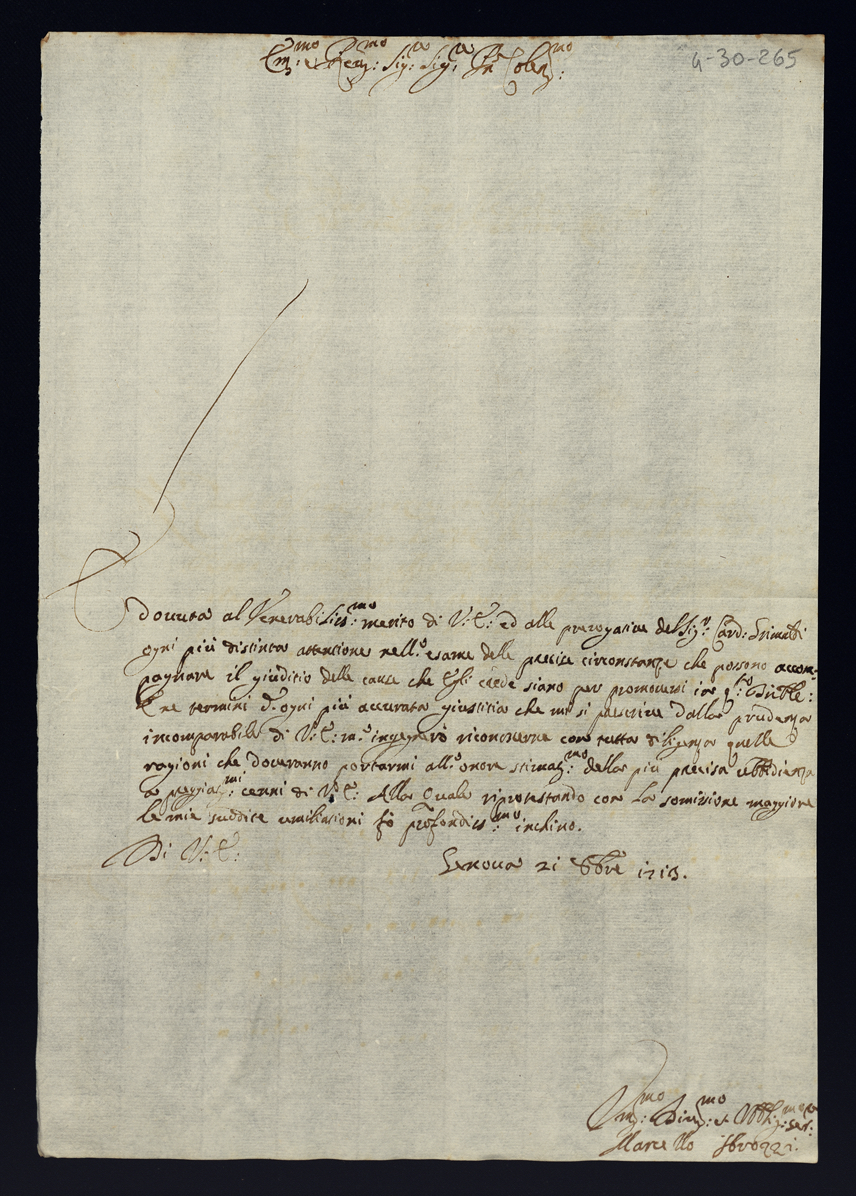 4-30-265
Em:mo e Re:mo Sig: Sig: Pn Col:mo
Dovuta al Venerabiliss:mo merito di V: E: ed alle prerogative del Sig:r Card: Grimaldi
ogni più distinta attenzione nell'o esame delle precise circonstanze che possono accom-
pagnare il giuditio delle cause che Egli crede siano per promoversi in q:to
E ne termini d'ogni più accurata giustitia che mi si prescrive dalla prudenza
incomparabile di V: E: m'ingegnerò riconoscerne con tutta diligenza quelle
ragioni che doveranno portarmi all'o onore stimat:mo della più precisa ubbidienza
a preggiat:mi cenni di V: E: Alla Quale riprotestando con la somissione maggiore
le mie suddite umiliationi fò profondiss:mo inchino.
Di V: E:
Genova 21 8bre 1713.
Um:mo Div:mo et Obb:mo Ser:
Marcello